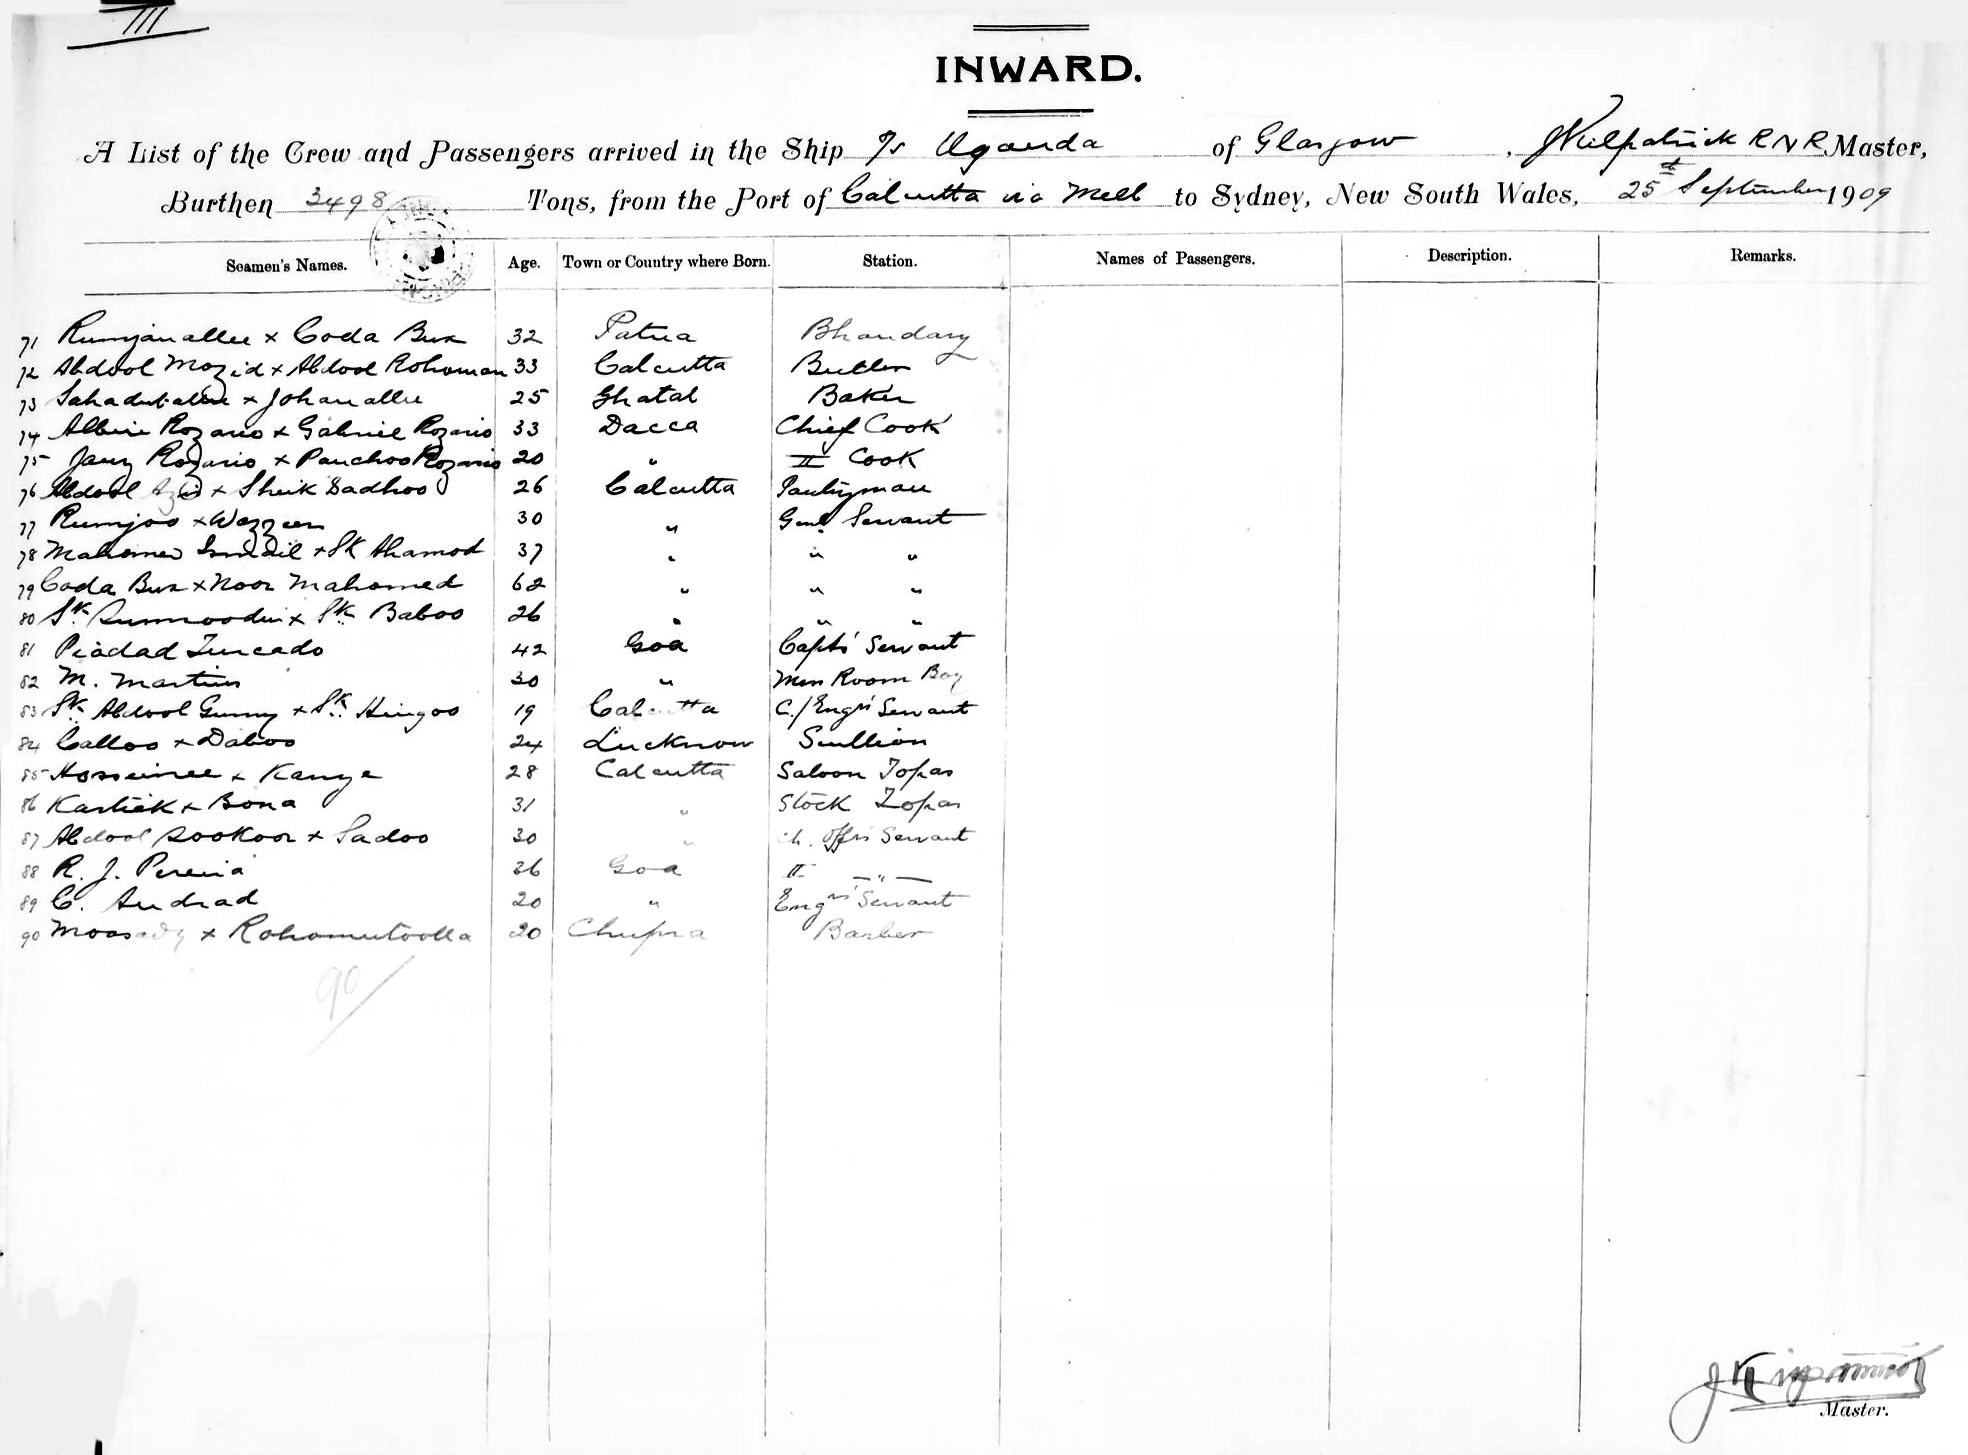 III
INWARD.
A List of the Crew and Passengers arrived in the Ship Ts Uganda of Glasgow, J Kilpatrick R N R Master,
Burthen 3498 Tons, from the Port of Calcutta via Melb to Sydney, New South Wales, 25th September 1909
Seamen's Names. Age. Town or Country where Born. Station. Names of Passengers. Description. Remarks.
71 Rumjanallee x Coda Bux 32 Patna Bhandary
72 Abdool Mozid x Abdool Rohoman 33 Calcutta Butler
73 x Johanallee 25 Ghatal Baker
74 Rozario x Gabriel Rozario 33 Dacca Chief Cook
75 Rozario x Panchoo Rozario 20 " II Cook
76 Abdool Azid x Sheik Sadhoo 26 Calcutta Pantryman
77 Rumjoo x Wazzeer 30 " Genl Servant
78 Mahomed Ismail x Sk Ahamod 37 " " "
79 Coda Bux x Noor Mahomed 62 " " "
80 Sk x Sk Baboo 26 " " "
81 Piadad Furcado 42 Goa Capts' Servant
82 M. Martins 30 " Mess Room Boy
83 Sk Abdool Gunny x Sk Hingoo 19 Calcutta C./Engrs' Servant
84 Calloo x Daboo 24 Lucknow Scullion
85 Hosseinee x Kanye 28 Calcutta Saloon Topas
86 Kartick x Bona 31 " Stock Topas
87 Abdool Sookoor x Sadoo 30 " Ch. Offrs Servant
88 R. J. Pereira 36 Goa II — " —
89 C. Andrad 20 " Engrs' Servant
90 x Rohomutoolla 20 Chupra Barber
90
Master.